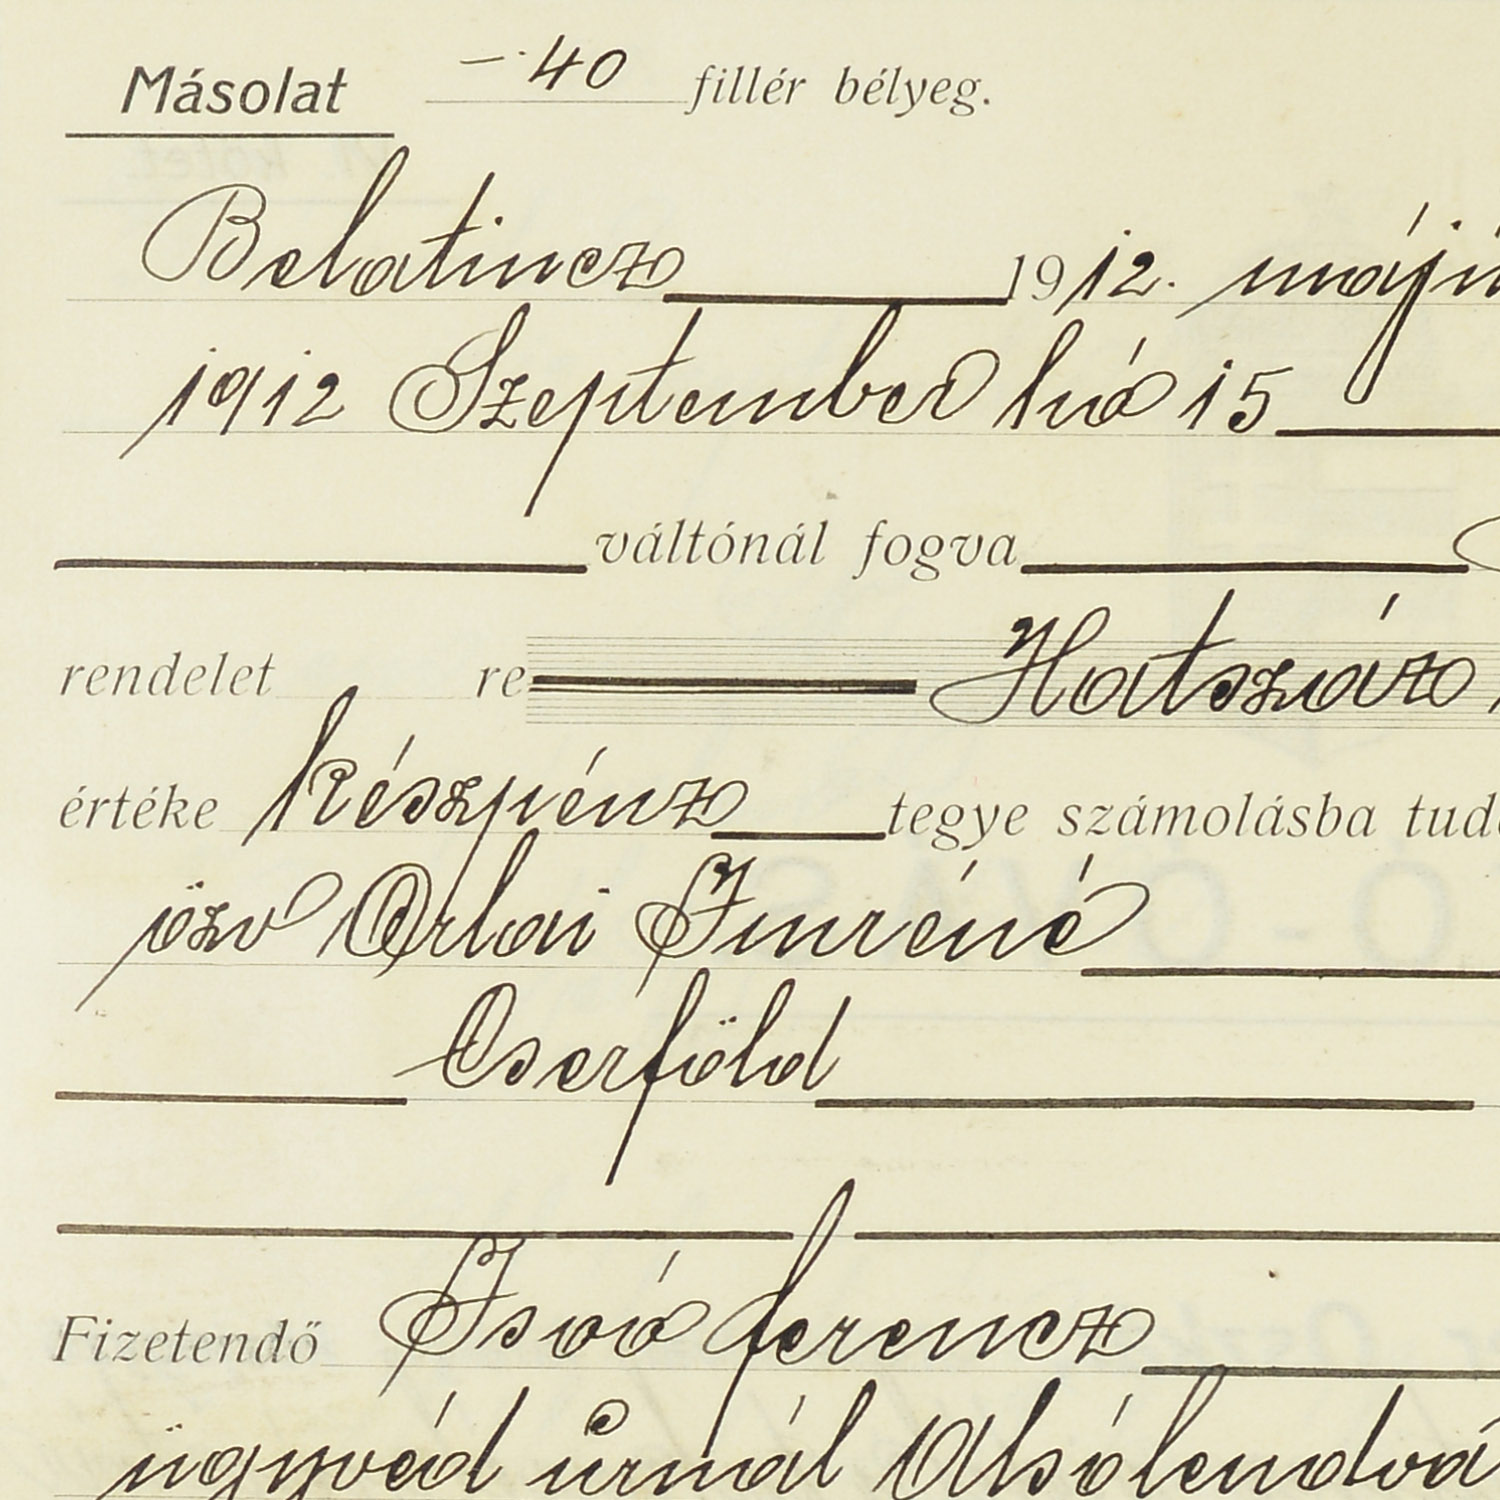 Másolat —·40 fillér bélyeg.
Belatincz 1912. máju
1912 Szeptember hó 15
váltónál fogva
rendelet re Hatszáz
értéke készpénz tegye számolásba tud
özv Orlai Imréné
Cserföld
Fizetendő Isoó ferencz
ügyvéd úrnál Alsólendvá